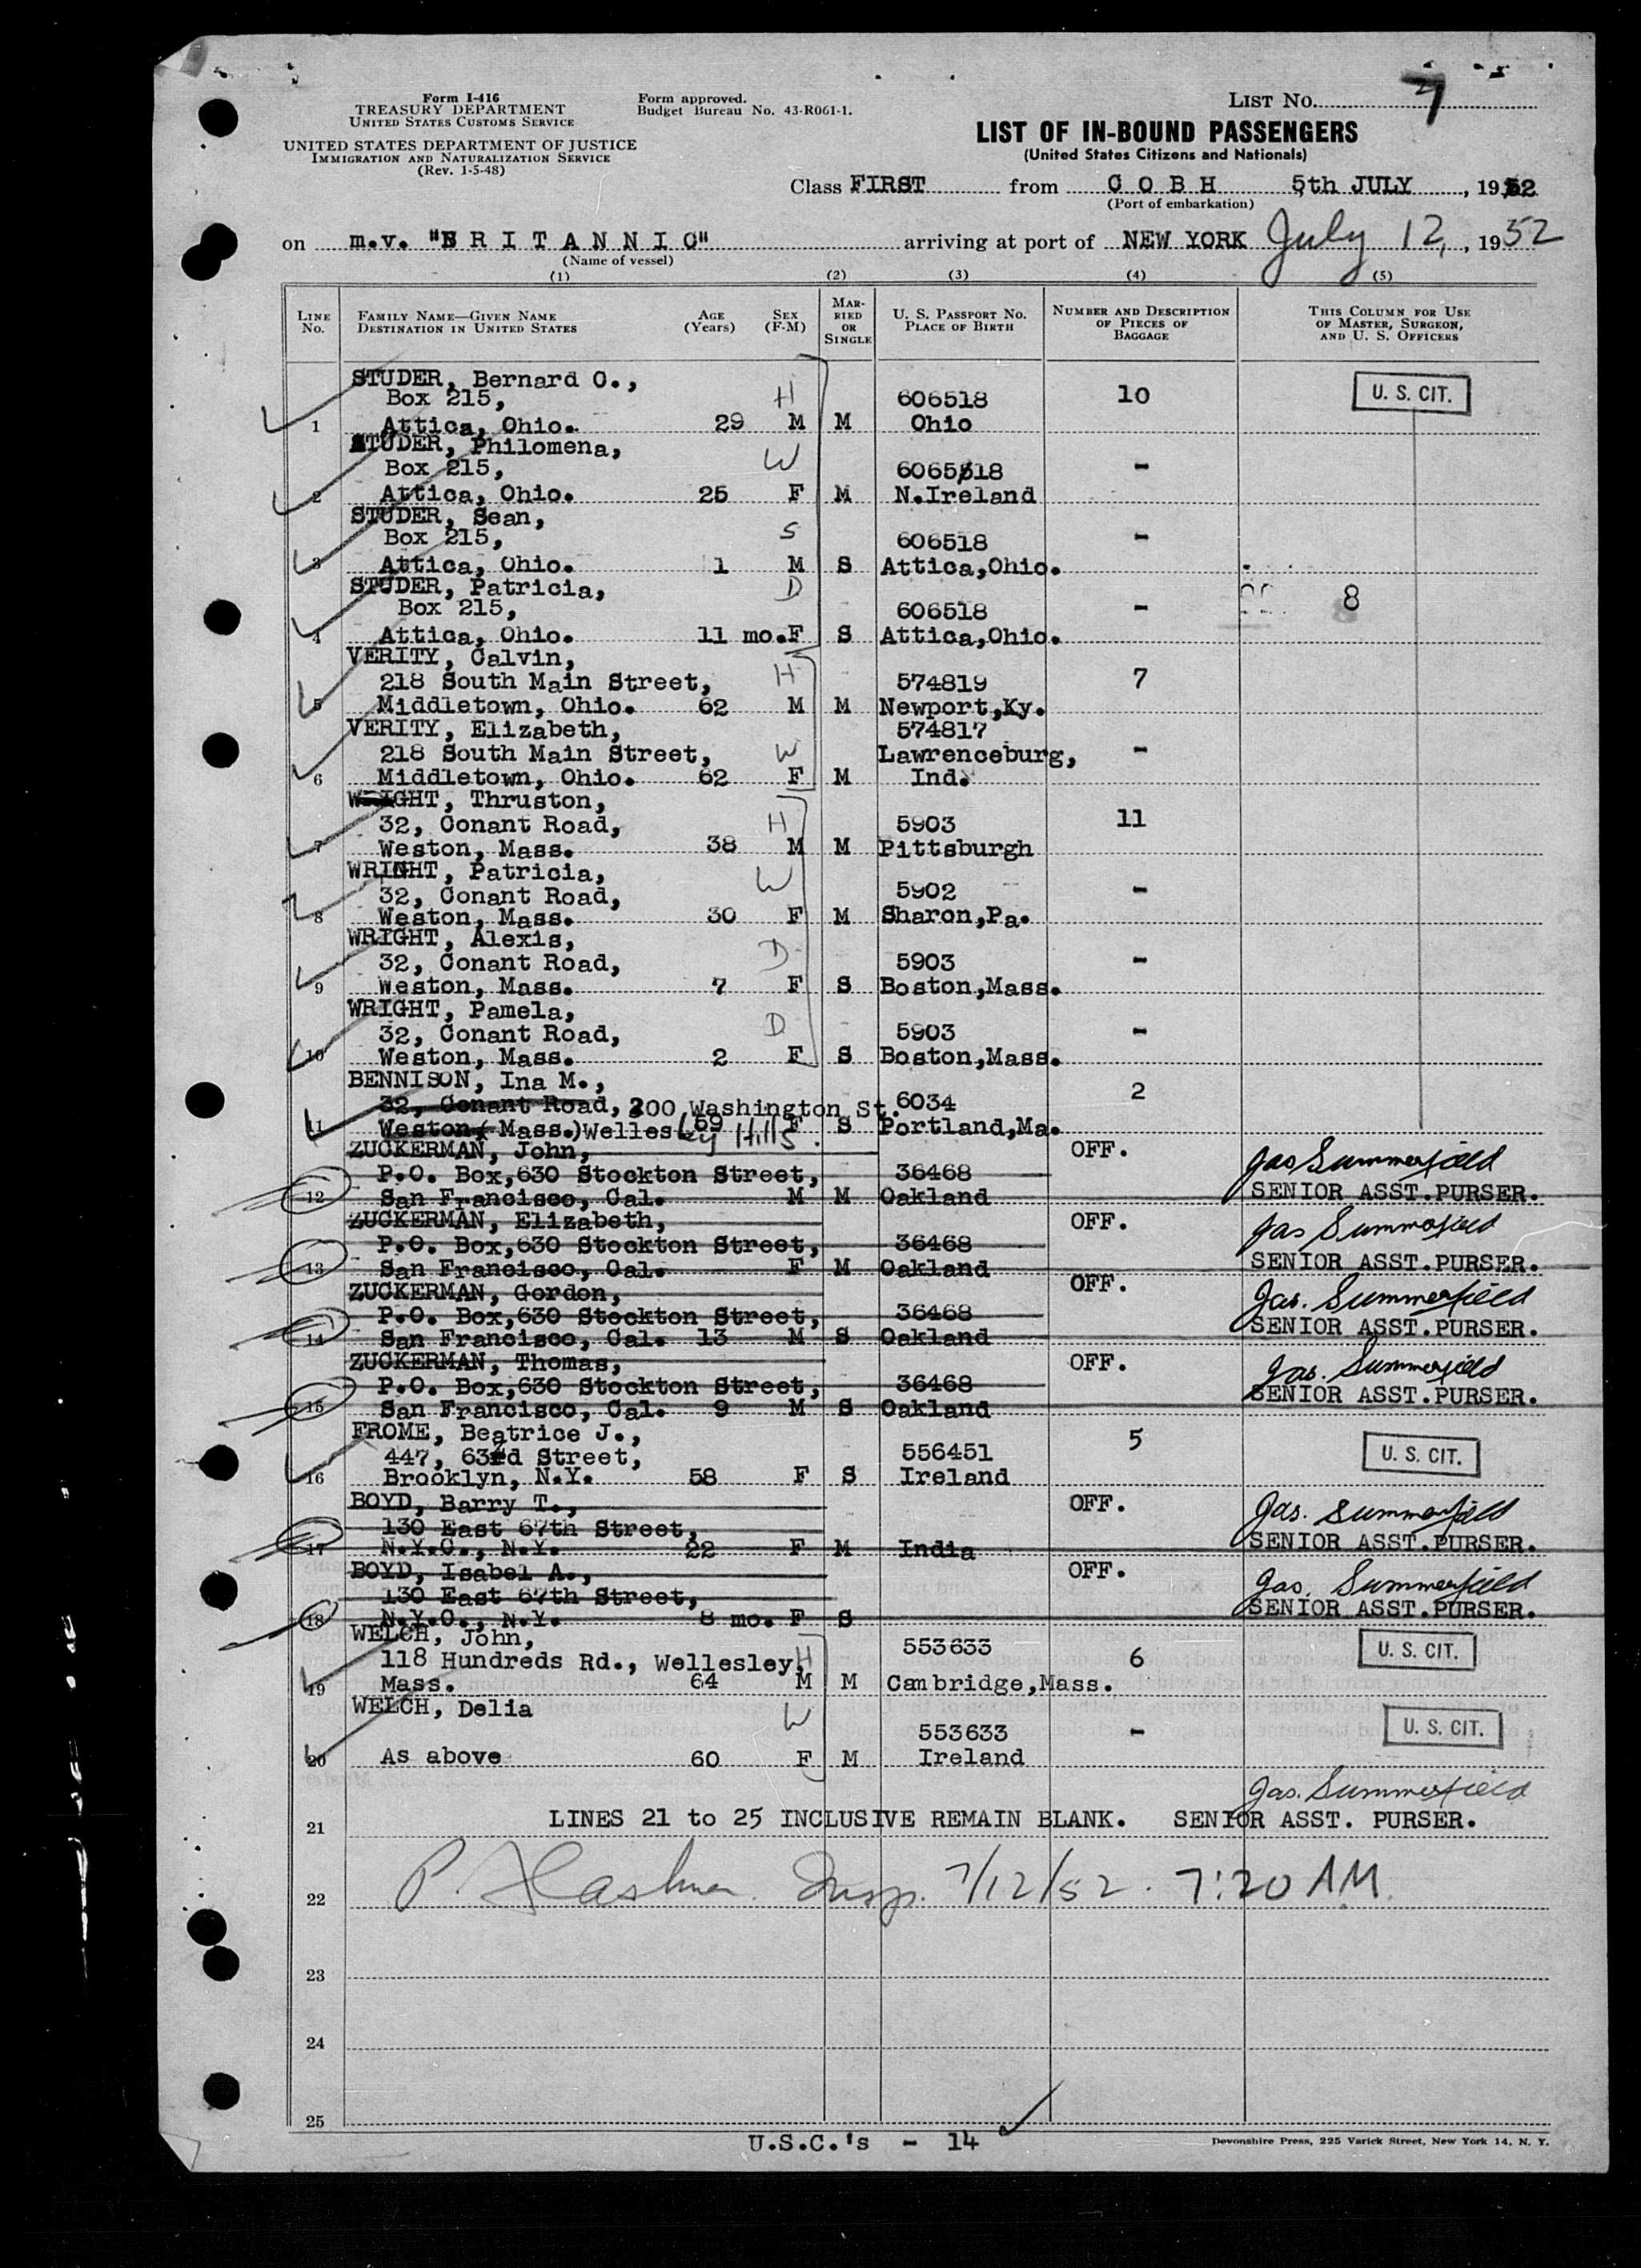 Form I-416
TREASURY DEPARTMENT
UNITED STATES CUSTOMS SERVICE
UNITED STATES DEPARTMENT OF JUSTICE
IMMIGRATION AND NATURALIZATION SERVICE
(Rev. 1-5-48)
Form approved.
Budget Bureau No. 43-R061-1.
LIST No. 7
LIST OF IN-BOUND PASSENGERS
(United States Citizens and Nationals)
Class FIRST from C O B H 5th JULY, 1952
(Port of embarkation)
on m.v. "B R I T A N N I C" arriving at port of NEW YORK July 12, 1952
(Name of vessel)
(1) (2) (3) (4) (5)
LINE No. FAMILY NAME—GIVEN NAME DESTINATION IN UNITED STATES AGE (Years) SEX (F-M) MARRIED OR SINGLE U. S. PASSPORT NO. PLACE OF BIRTH NUMBER AND DESCRIPTION OF PIECES OF BAGGAGE THIS COLUMN FOR USE OF MASTER, SURGEON, AND U. S. OFFICERS
STUDER, Bernard C.,
Box 215, H 606518 10 U. S. CIT.
1 Attica, Ohio. 29 M M Ohio
STUDER, Philomena,
Box 215, W 606518 -
2 Attica, Ohio. 25 F M N.Ireland
STUDER, Sean,
Box 215, S 606518 -
3 Attica, Ohio. 1 M S Attica,Ohio.
STUDER, Patricia, D
Box 215, 606518 - 8
4 Attica, Ohio. 11 mo. F S Attica,Ohio.
VERITY, Calvin,
218 South Main Street, H 574819 7
5 Middletown, Ohio. 62 M M Newport,Ky.
VERITY, Elizabeth, 574817
218 South Main Street, W Lawrenceburg, -
6 Middletown, Ohio. 62 F M Ind.
WRIGHT, Thruston,
32, Conant Road, H 5903 11
7 Weston, Mass. 38 M M Pittsburgh
WRIGHT, Patricia,
32, Conant Road, W 5902 -
8 Weston, Mass. 30 F M Sharon,Pa.
WRIGHT, Alexis,
32, Conant Road, D 5903 -
9 Weston, Mass. 7 F S Boston,Mass.
WRIGHT, Pamela,
32, Conant Road, D 5903 -
10 Weston, Mass. 2 F S Boston,Mass.
BENNISON, Ina M.,
32, Conant Road, 200 Washington St. 6034 2
11 Weston( Mass.)Wellesley Hills. 59 F S Portland,Ma.
ZUCKERMAN, John, OFF.
P.O. Box,630 Stockton Street, 36468 Jas Summerfield
12 San Francisco, Cal. M M Oakland SENIOR ASST.PURSER.
ZUCKERMAN, Elizabeth, OFF.
P.O. Box,630 Stockton Street, 36468 Jas Summerfield
13 San Francisco, Cal. F M Oakland SENIOR ASST.PURSER.
ZUCKERMAN, Gordon, OFF.
P.O. Box,630 Stockton Street, 36468 Jas. Summerfield
14 San Francisco, Cal. 13 M S Oakland SENIOR ASST.PURSER.
ZUCKERMAN, Thomas, OFF.
P.O. Box,630 Stockton Street, 36468 Jas. Summerfield
15 San Francisco, Cal. 9 M S Oakland SENIOR ASST.PURSER.
FROME, Beatrice J.,
447, 63rd Street, 556451 5 U. S. CIT.
16 Brooklyn, N.Y. 58 F S Ireland
BOYD, Barry T., OFF.
130 East 67th Street, Jas. Summerfield
17 N.Y.C., N.Y. 22 F M India SENIOR ASST.PURSER.
BOYD, Isabel A., OFF.
130 East 67th Street, Jas. Summerfield
18 N.Y.C., N.Y. 8 mo. F S SENIOR ASST.PURSER.
WELCH, John, 553633
118 Hundreds Rd., Wellesley, H 6 U. S. CIT.
19 Mass. 64 M M Cambridge,Mass.
WELCH, Delia W
553633 - U. S. CIT.
20 As above 60 F M Ireland
Jas. Summerfield
21 LINES 21 to 25 INCLUSIVE REMAIN BLANK. SENIOR ASST. PURSER.
22 P. Insp. 7/12/52. 7:20 AM
23
24
25
U.S.C.'s - 14
Devonshire Press, 225 Varick Street, New York 14, N. Y.